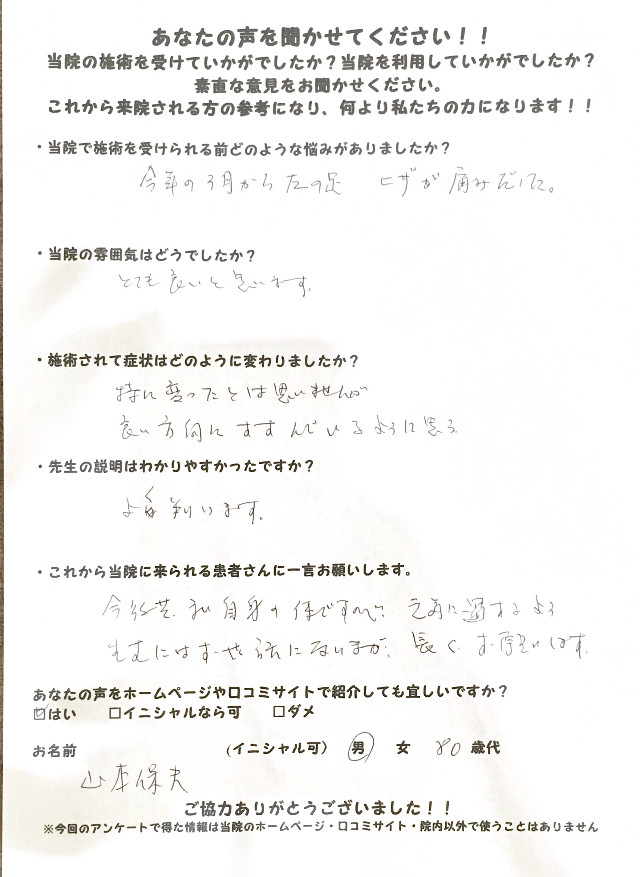 あなたの声を聞かせてください！！
当院の施術を受けていかがでしたか？当院を利用していかがでしたか？
素直な意見をお聞かせください。
これから来院される方の参考になり、何より私たちの力になります！！
・当院で施術を受けられる前どのような悩みがありましたか？
今年の3月から左の足 ヒザが痛みだした。
・当院の雰囲気はどうでしたか？
とても良いと思います。
・施術されて症状はどのように変わりましたか？
特に変ったとは思いませんが
良い方向にすすんでいるように思う
・先生の説明はわかりやすかったですか？
よく判います。
・これから当院に来られる患者さんに一言お願いします。
自身の体ですので、元気に過すよう
長く お願いします。
あなたの声をホームページや口コミサイトで紹介しても宜しいですか？
☑はい □イニシャルなら可 □ダメ
お名前 (イニシャル可) 男 女 80歳代
山本保夫
ご協力ありがとうございました！！
※今回のアンケートで得た情報は当院のホームページ・口コミサイト・院内以外で使うことはありません